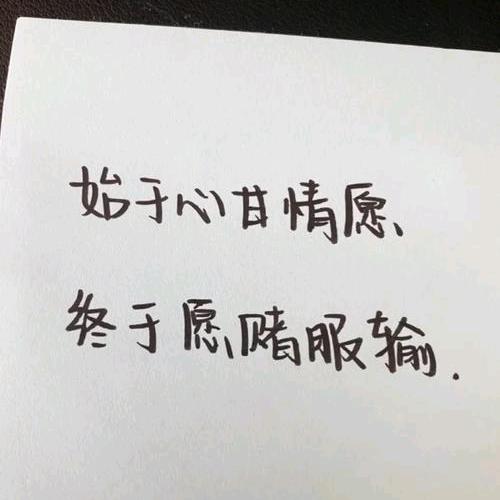 始于心甘情愿、
终于愿赌服输.